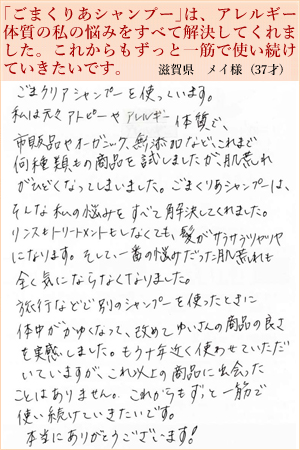 「ごまくりあシャンプー」は、アレルギー
体質の私の悩みをすべて解決してくれま
した。これからもずっと一筋で使い続け
ていきたいです。
滋賀県　メイ様（37才）
ごまクリアシャンプーを使っています。
私は元々アトピーやアレルギー体質で、
市販品やオーガニック、無添加など、これまで
何種類もの商品を試しましたが、肌荒れ
がひどくなってしまいました。ごまくりあシャンプーは、
そんな私の悩みをすべて解決してくれました。
リンスもトリートメントもしなくても、髪がサラサラツヤツヤ
になります。そして一番の悩みだった肌荒れも
全く気にならなくなりました。
旅行などで別のシャンプーを使ったときに
体中がかゆくなって、改めてゆいさんの商品の良さ
を実感しました。もう十年近く使わせていただ
いていますが、これ以上の商品に出会った
ことはありません。これからもずっと一筋で
使い続けていきたいです。
本当にありがとうございます!